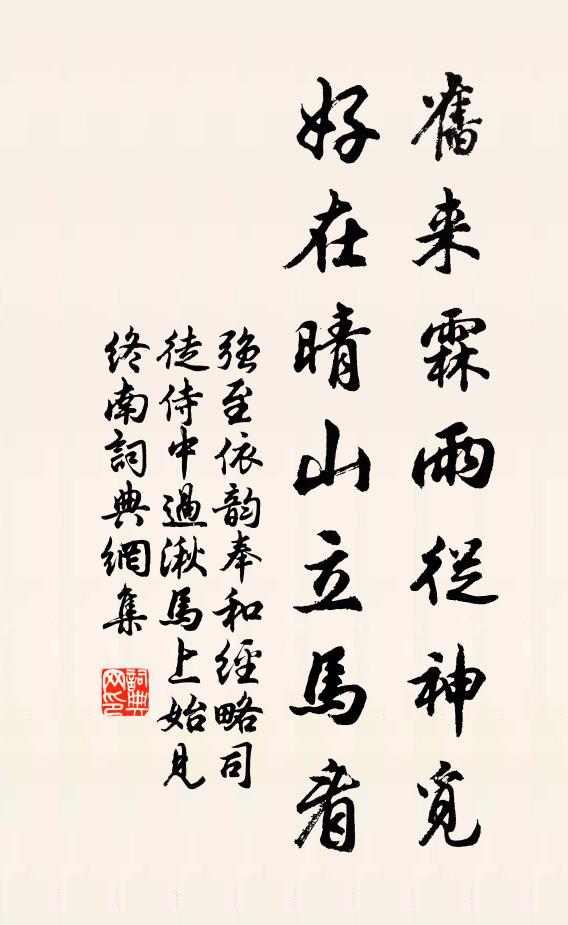 舊来霖雨從神覓
好在晴山立馬看
強至依韵奉和經略司
徒侍中過湫馬上始見
終南詞典網集
詞典网印